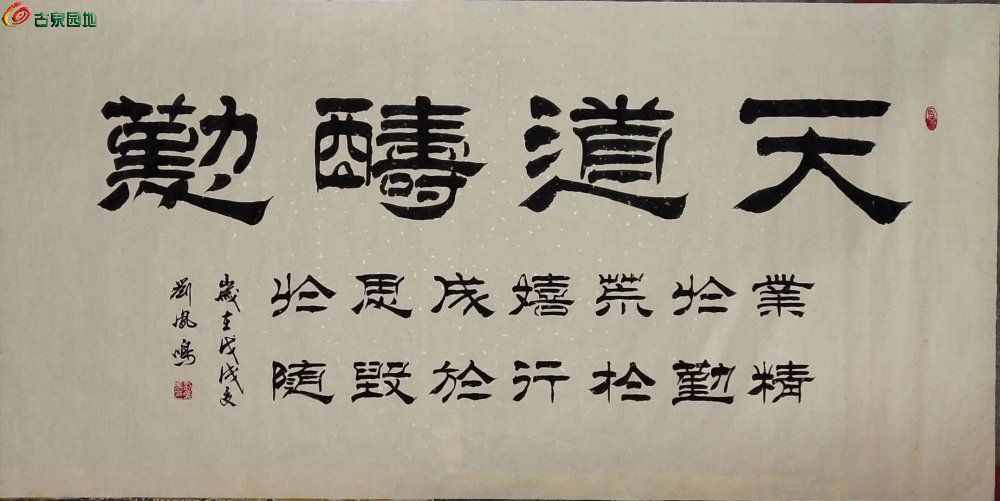 古泉园地
天道酬勤
業精
於勤
荒於
嬉行
成於
思毀
於随
歲在戊戌夏
劉鳳鳴